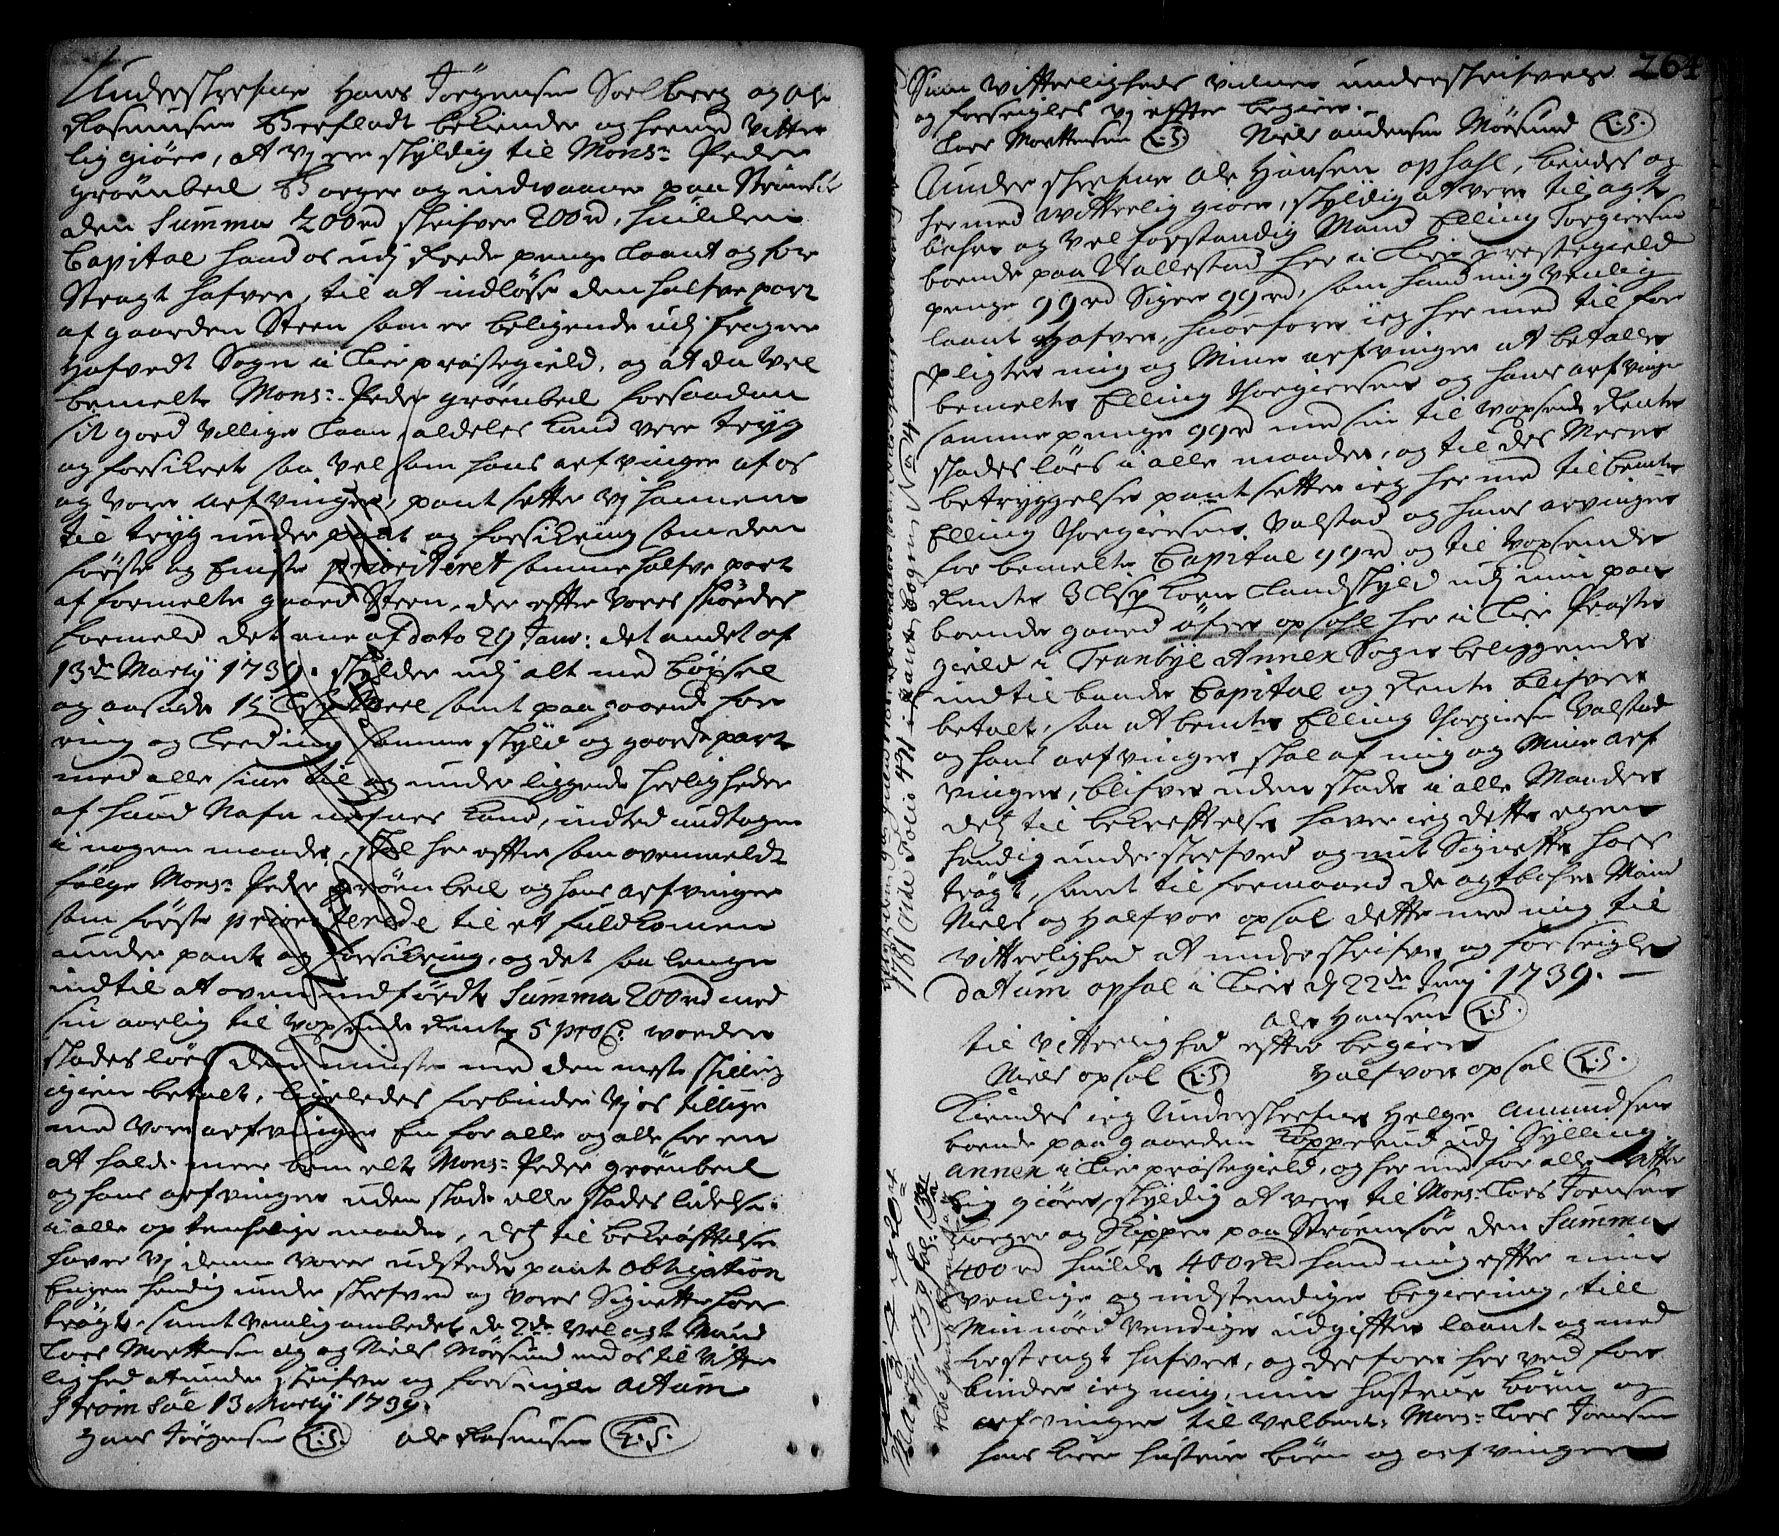 Underskrefne Hans Jörgensen Soelberg og Ole
Rasmusen Berfladt bekiender og hermed Vitter
lig giöre, at Vj ere skyldig til Mons:r Peder
Gröenbeil Borger og indwaaner paa Strömsöe
den Summa 200 rd skrifver 200 rd, huilcken
Capital hand os udj Reede penge laant og for
Stragt hafver, til at indlöse den halfve part
af gaarden Steen som er beligende udj Fragner
Hofvedt Sogn i Lier præstegield, og at da Vel
bemelte Mons:r Peder Gröenbeil forsaadan
sit goed Villige laan aldeles kand vere tryg
og forsikret saa Vel som hans arfvinger af os
og Vore arfvinger, pant setter Vj hannem
til tryg under pant og forsikring som den
förste og Eniste prioriteret samme halfve part
af formelte gaard Steen, der effter Vores skiöder
formeld det ene af dato 29 Janu: det andet af
13de Martij 1739. skylder udj alt med böxsel
og aasæde 15 Lispd meel samt paagaaende for
ring og leeding samme skyld og gaarde part
med alle sine til og under liggende herligheder
af huad Nafn nefnes kand, indted undtagen
i nogen maade, skal her effter som ovenmeldt
fölge Mons:r Peder Gröenbeil og hans arfvinger
som förste prioriterede til et fuldkomen
under pant og forsikring, og det saa lenge
indtil at oven indfördte Summa 200 rd med
sin aarlig til Voxsende Rente 5 pro C: worder
skadeslöes den minste med den meste skilling
igien betalt, ligeledes forbinder Vj os tillige
med Vore arfvinger En for alle og alle for en
at holde meer bemelte Mons:r Peder Gröenbeil
og hans arfvinger uden skade eller skades lidelse
i alle op tenkelige maader, det til bekræfftelse
haver Vj denne Vores udstede pant obligation
Egenhendig under skrefved og Vores Signetter hos
trögt, samt Venlig ombedet de 2de Vel agt Mænd
Lars Morttensen og Niels Mörsund med os til Vitter
lighed at under skrifve og forsegle Actum
Strömsöe 13 Martij 1739.
Hans Jörgensen (L:S.) Ole Rasmusen (L:S.)
264
Som Vitterligheds Vidner underskrifver
og forseigler Vj effter begier.
Lars Morttensen (L:S) Niels Andersen Mörsund (L:S.)
Under skrefne Ole Hansen opsahl, kiendes og
her med witterlig giöre, skyldig at vere til agt
bahre og Vel forstandig Mand Elling Torgiersen
boende paa Wallestad her i Lier præstegield
penge 99 rd Siger 99 rd, som hand mig Venlig
laant hafver, huorfore ieg her med til for
pligter mig og Mine arfvinger at betalle
bemelte Elling Thorgiersen og hans arfvinger
samme penge 99 rd med sin til Voxsende Rente
skadeslöes i alle maader, og til des Meere
betryggelse pant setter ieg her med til bemte
Elling Thorgiersen Valstad og hans arvinger
for bemelte Capital 99 rd og til Voxsende
Rente 3 Lisp korn Landskyld udj min paa
boende gaard öfver opsahl her i Lier Præste
gield i Tranbÿe Annex Sogn beliggende
indtil bemte Capital og Rente blifver
betalt, saa at bemte Elling Thorgiersen Valstad
og hans arfvinger skal af mig og Mine arf
vinger, blifve uden skade i alle Maader
det til bekreftelse haver ieg dette egen
hændig underskrefved og mit Signette hos
trögt, samt til formaaed de agtbahre Mænd
Niels og Halfvor opsal dette med mig til
Vitterlighed at underskrifve og forseigle
datum opsal i Lier d 22de Junj 1739.
Ole Hansen (L:S.)
til Vitterlighed effter begier
Niels opsal (L:S) Halfvor opsal (L:S.)
Kiendes ieg Underskrefne Helge Amundsen
boende paa gaarden Kopperud udj Sylling
annex i Lier præstegield, og her med for alle Vitter
lig giöre, skyldig at vere til Mons:r Lars Joensen
borger og Skipper paa Strömsöe den Summa
400 rd huilcke 400 rd hand mig effter min
venlige og indstendige begiering, till
Min nöd Vendige udgiffter laant og med
forstragt hafver, og derfore her ved for
binder ieg mig, min hustrue börn og
arfvinger til Velbemte Mons:r Lars Joensen
hans kiere hustrue börn og arfvinger